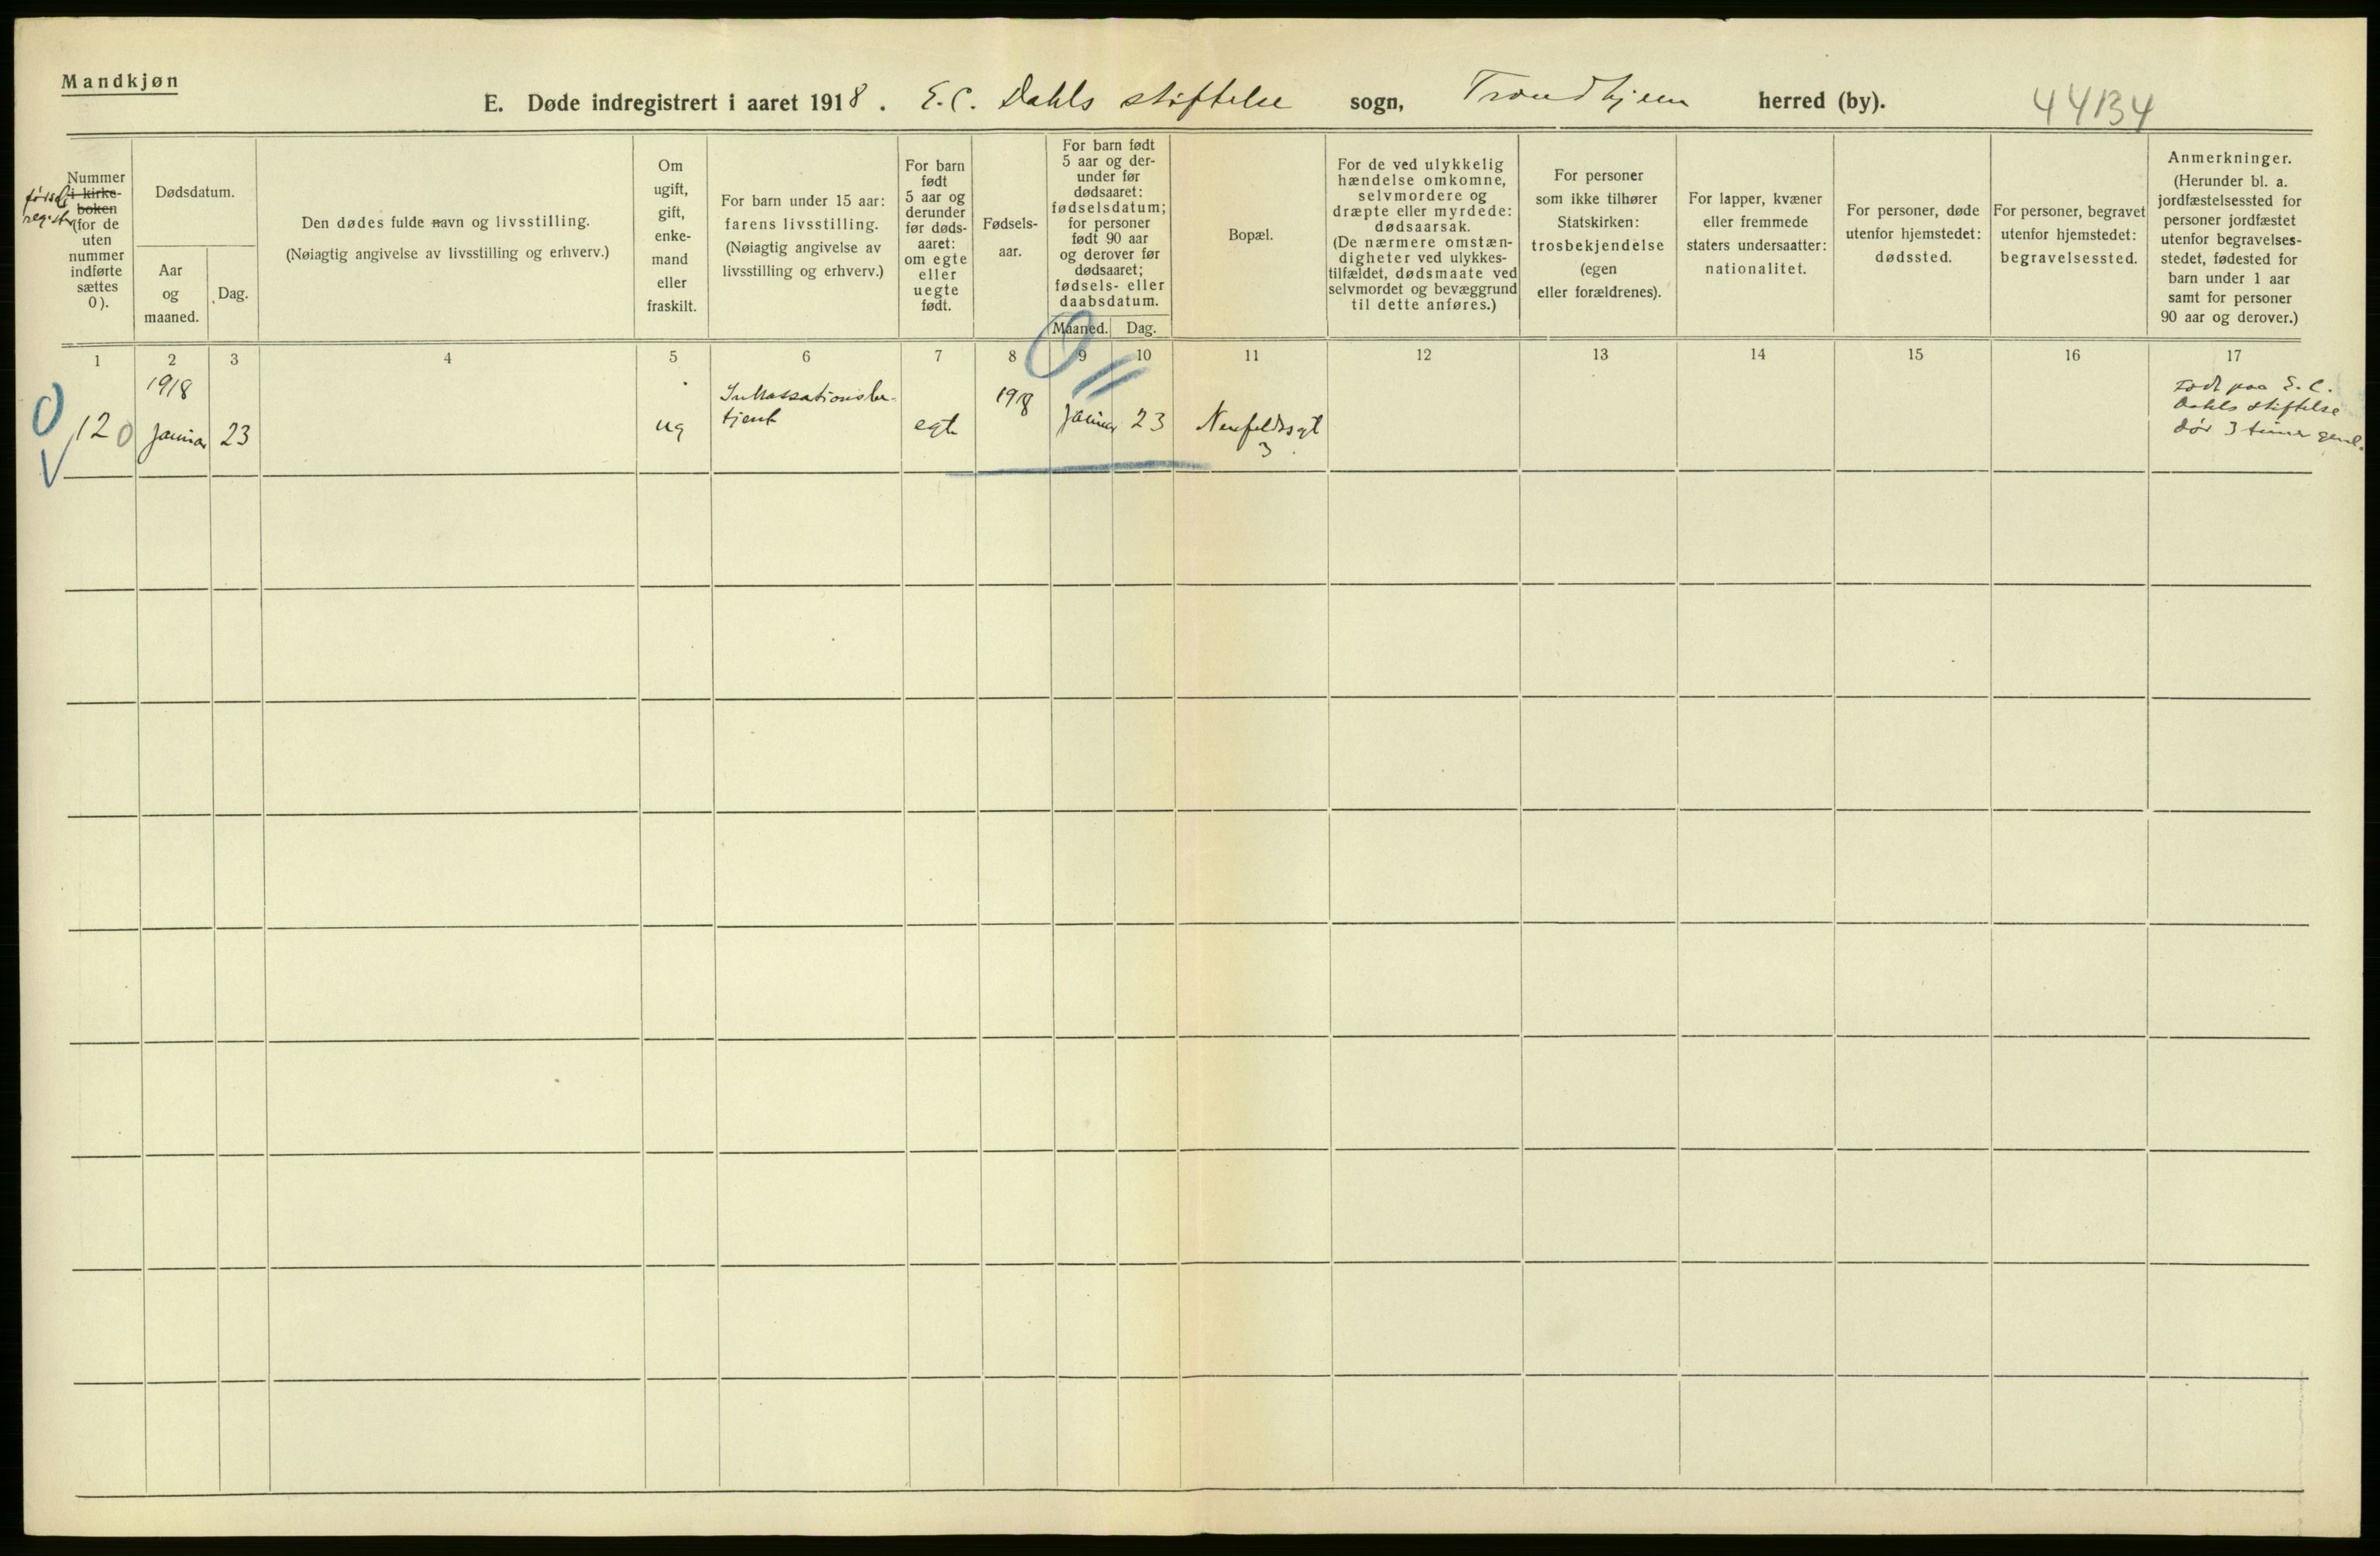 Mandkjøn
E. Døde indregistrert i aaret 1918. E. C. Dahls stiftelse sogn, Trondhjem herred (by). 44134
Nummer
i kirke-
boken
(for de
uten
nummer
indførte
sættes
0).
Dødsdatum.
Aar
og
maaned.
Dag.
Den dødes fulde navn og livsstilling.
(Nøiagtig angivelse av livsstilling og erhverv.)
Om
ugift,
gift,
enke-
mand
eller
fraskilt.
For barn under 15 aar:
farens livsstilling.
(Nøiagtig angivelse av
livsstilling og erhverv.)
For barn
født
5 aar og
derunder
før døds-
aaret:
om egte
eller
uegte
født.
Fødsels-
aar.
For barn født
5 aar og der-
under før
dødsaaret:
fødselsdatum;
for personer
født 90 aar
og derover før
dødsaaret;
fødsels- eller
daabsdatum.
Maaned. Dag.
Bopæl.
For de ved ulykkelig
hændelse omkomne,
selvmordere og
dræpte eller myrdede:
dødsaarsak.
(De nærmere omstæn-
digheter ved ulykkes-
tilfældet, dødsmaate ved
selvmordet og bevæggrund
til dette anføres.)
For personer
som ikke tilhører
Statskirken:
trosbekjendelse
(egen
eller forældrenes).
For lapper, kvæner
eller fremmede
staters undersaatter:
nationalitet.
For personer, døde
utenfor hjemstedet:
dødssted.
For personer, begravet
utenfor hjemstedet:
begravelsessted.
Anmerkninger.
(Herunder bl. a.
jordfæstelsessted for
personer jordfæstet
utenfor begravelses-
stedet, fødested for
barn under 1 aar
samt for personer
90 aar og derover.)
1 2 3 4 5 6 7 8 9 10 11 12 13 14 15 16 17
0
120
1918
Januar
23
ug
Inkassationsbe-
tjent
egte
1918
Januar
23
0
Neufeldtsgt
3
Født paa E. C.
Dahls stiftelse
dør 3 timer